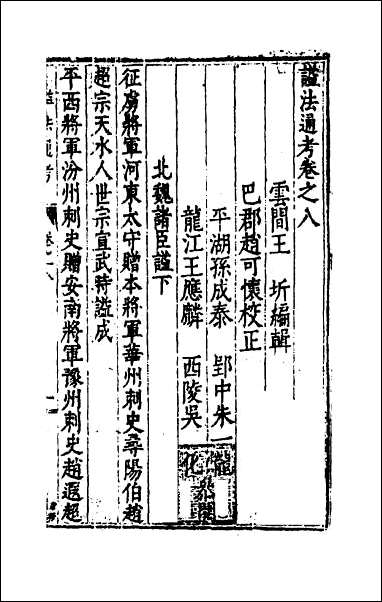 諡法通考卷之八
雲間王圻編輯
巴郡趙可懷校正
平湖孫成泰 郢中朱一
龍江王應麟 西陵吳化
北魏諸臣諡下
征虜將軍河東太守贈本將軍華州刺史尋陽伯趙
超宗天水人世宗宣武時諡成
平西將軍汾州刺史贈安南將軍豫州刺史趙遐超
諡法通考 卷之八 一